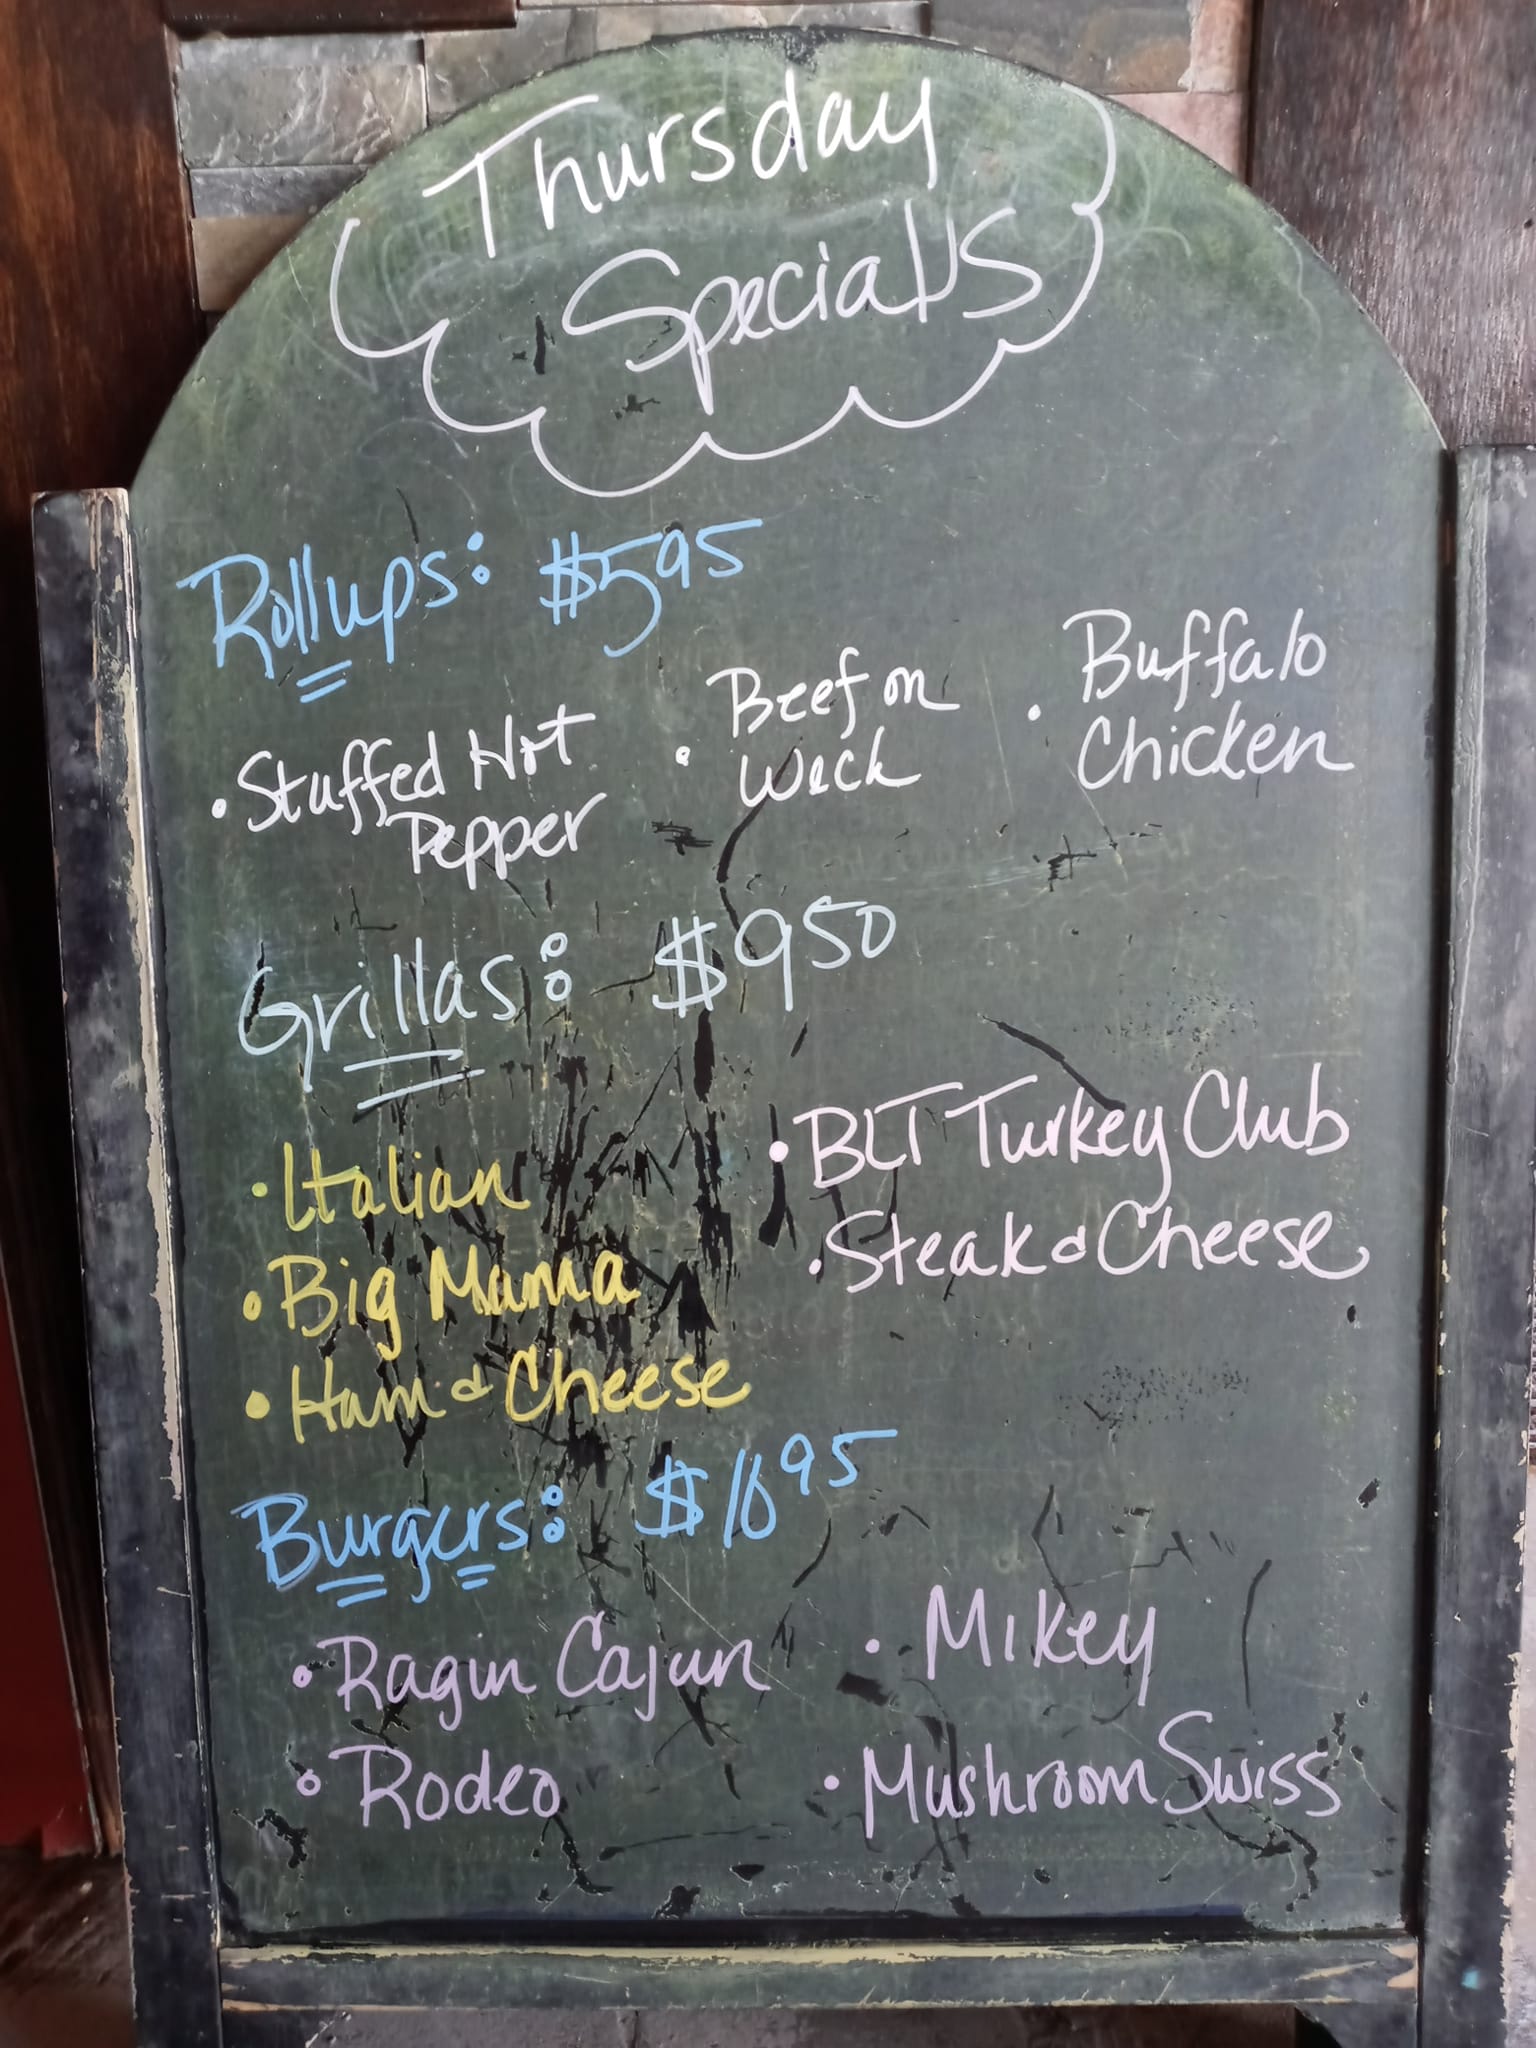 Thursday
Specials
Rollups: $5 95
• Stuffed Hot
Pepper
• Beef on
Weck
• Buffalo
Chicken
Grillas: $9 50
• Italian
• Big Mama
• Ham & Cheese
• BLT Turkey Club
• Steak & Cheese
Burgers: $10 95
• Ragin Cajun
• Rodeo
• Mikey
• Mushroom Swiss